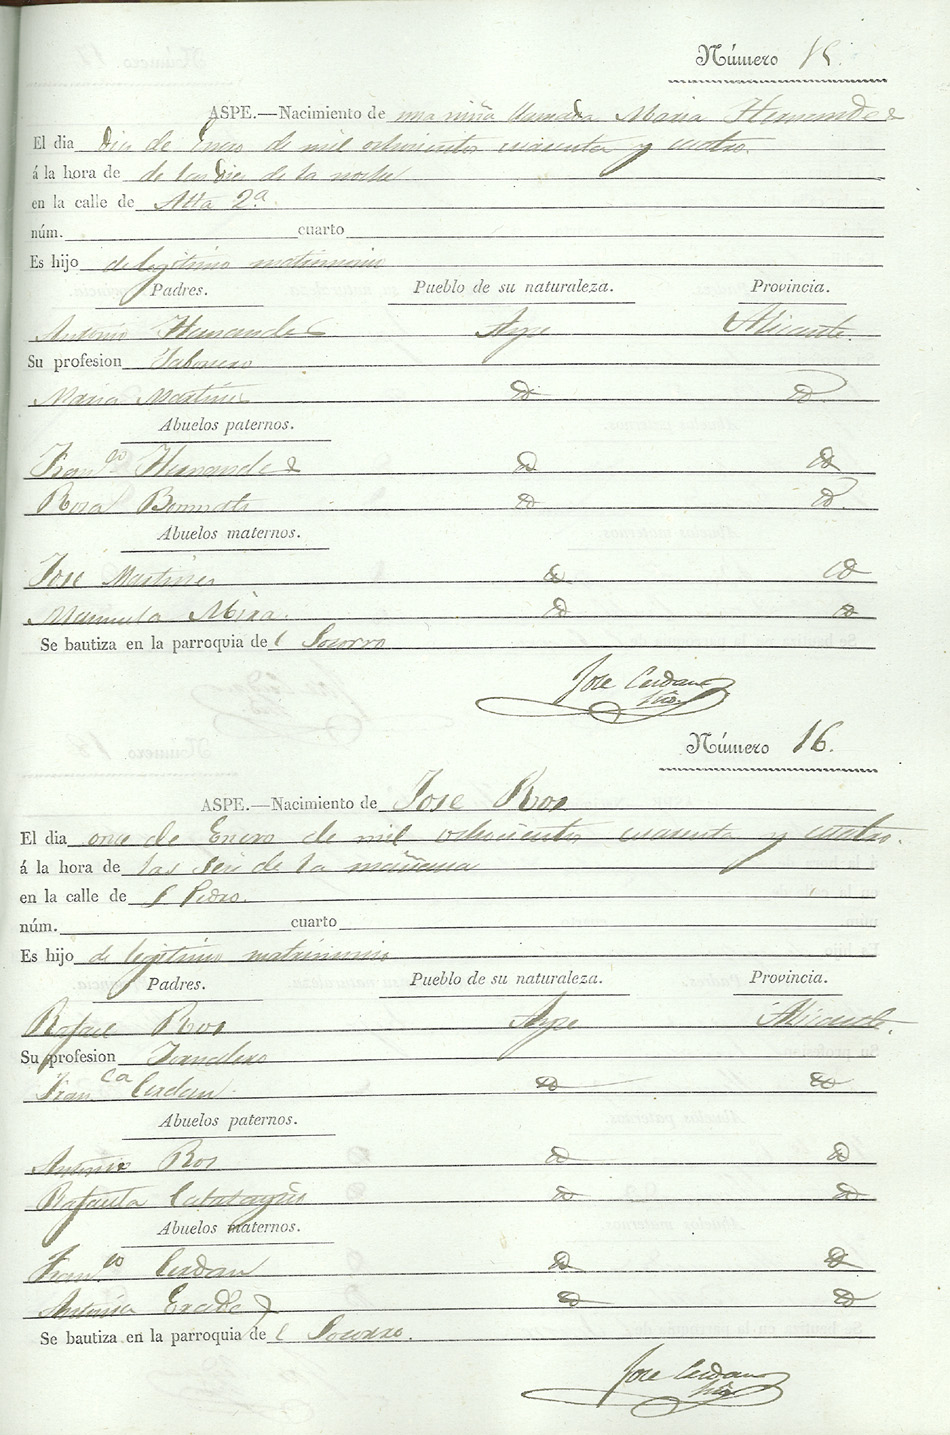 Número 15.
ASPE.—Nacimiento de una niña llamada Maria Hernandez
El dia Diez de Enero de mil ochocientos cuarenta y cuatro.
á la hora de de las Diez de la noche
en la calle de Alta 2ª
núm. cuarto
Es hijo de legitimo matrimonio
Padres. Pueblo de su naturaleza. Provincia.
Antonio Hernandez Aspe Alicante.
Su profesion
Maria Martinez
Abuelos paternos.
Fran.co Hernandez
Rosa
Abuelos maternos.
Jose Martinez
Manuela Mira.
Se bautiza en la parroquia del Socorro
Jose Cerdan
Número 16.
ASPE.—Nacimiento de Jose Ros
El dia once de Enero de mil ochocientos cuarenta y cuatro.
á la hora de las seis de la mañana
en la calle de S Pedro.
núm. cuarto
Es hijo de legitimo matrimonio
Padres. Pueblo de su naturaleza. Provincia.
Rafael Ros Aspe Alicante.
Su profesion Jornalero
Fran.ca Cerdan.
Abuelos paternos.
Antonio Ros
Rafaela Calatayud
Abuelos maternos.
Fran.co Cerdan
Antonia
Se bautiza en la parroquia del Socorro.
Jose Cerdan